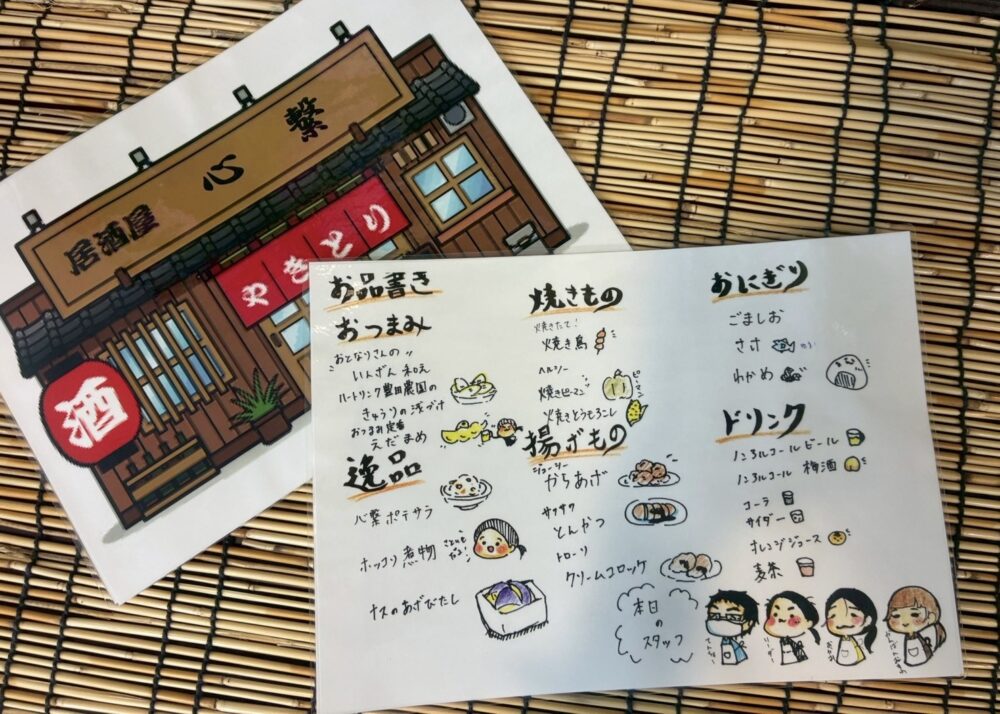 居酒屋 心 繋
やきとり
酒
お品書き
おつまみ
おとなりさんの
いんげん和え
ハートリンク豊田農園の
きゅうりの浅づけ
おつまみ定番
えだまめ
逸品
心繋ポテサラ
ホッコリ煮物
ナスのあげびたし
焼きもの
焼きたて!
焼き鳥
ヘルシー
焼きピーマン
ピーマン
焼きとうもろこし
揚げもの
ジューシー
からあげ
サクサク
とんかつ
トローリ
クリームコロッケ
おにぎり
ごましお
さけ
わかめ
ドリンク
ノンアルコールビール
ノンアルコール 梅酒
コーラ
サイダー
オレンジジュース
麦茶
本日
の
スタッフ